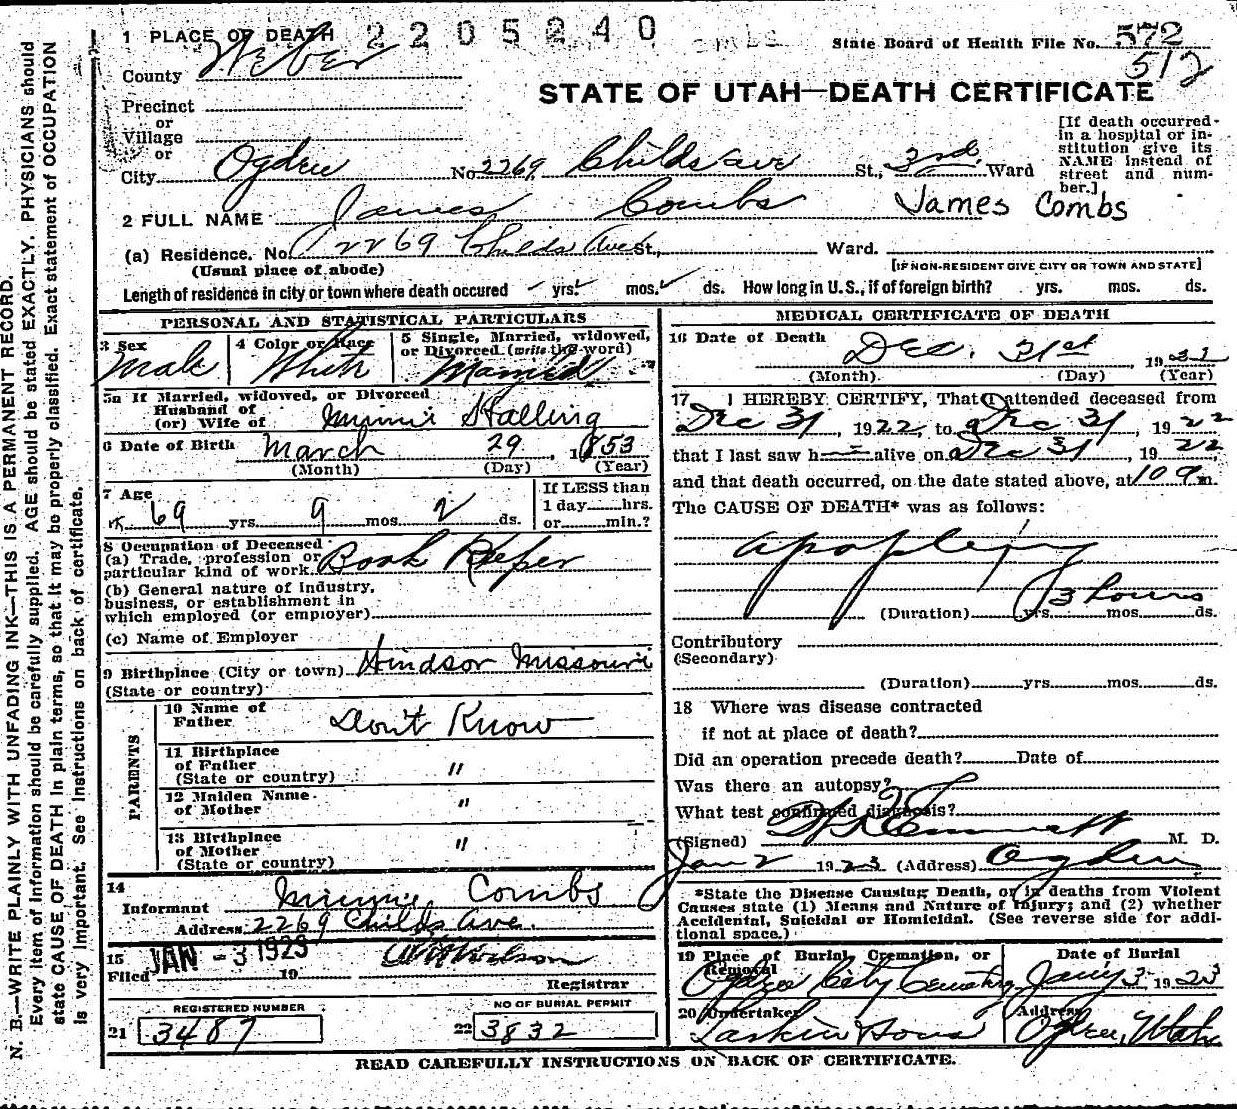 1 PLACE OF DEATH 2 2 0 5 2 4 0
State Board of Health File No. 572
512
County Weber
STATE OF UTAH—DEATH CERTIFICATE
Precinct
or
Village
or
City Ogden No. 2269 Childs ave St., 3rd. Ward
[If death occurred in a hospital or in-
stitution give its
NAME instead of
street and num-
ber.]
2 FULL NAME James Combs James Combs
(a) Residence. No. 2269 Childs Ave St., Ward.
(Usual place of abode) [IF NON-RESIDENT GIVE CITY OR TOWN AND STATE]
Length of residence in city or town where death occured yrs. mos. ds. How long in U. S., if of foreign birth? yrs. mos. ds.
PERSONAL AND STATISTICAL PARTICULARS
3 Sex
Male
4 Color or Race
White
5 Single, Married, widowed,
or Divorced (write the word)
Married
5a If Married, widowed, or Divorced
Husband of
(or) Wife of Minnie Stalling
6 Date of Birth March 29, 1853
(Month) (Day) (Year)
7 Age
69 yrs. 9 mos. 2 ds.
If LESS than
1 day hrs.
or min.?
8 Occupation of Deceased
(a) Trade, profession or
particular kind of work Book Keeper
(b) General nature of Industry,
business, or establishment in
which employed (or employer)
(c) Name of Employer
9 Birthplace (City or town) Windsor Missouri
(State or country)
PARENTS
10 Name of
Father Don't Know
11 Birthplace
of Father "
(State or country)
12 Maiden Name
of Mother "
13 Birthplace
of Mother "
(State or country)
14
Informant Minnie Combs
Address 2269 Childs Ave.
15 JAN -3 1923
Filed 19 Wilson
Registrar
REGISTERED NUMBER
21 3487
NO OF BURIAL PERMIT
22 3832
MEDICAL CERTIFICATE OF DEATH
16 Date of Death Dec. 31st, 19
(Month) (Day) (Year)
17 I HEREBY CERTIFY, That I attended deceased from
Dec 31, 1922, to Dec 31, 1922
that I last saw h alive on Dec 31, 1922,
and that death occurred, on the date stated above, at 10 m.
The CAUSE OF DEATH* was as follows:
apoplexy
3 hours
(Duration) yrs. mos. ds.
Contributory
(Secondary)
(Duration) yrs. mos. ds.
18 Where was disease contracted
if not at place of death?
Did an operation precede death? Date of
Was there an autopsy?
What test confirmed diagnosis?
(Signed) Emmett M. D.
Jan 2 1923 (Address) Ogden
*State the Disease Causing Death, or in deaths from Violent
Causes state (1) Means and Nature of Injury; and (2) whether
Accidental, Suicidal or Homicidal. (See reverse side for addi-
tional space.)
19 Place of Burial, Cremation, or
Removal
Ogden City Cemetery
Date of Burial
Jany 3 1923
20 Undertaker
Larkin & Sons
Address
Ogden, Utah
READ CAREFULLY INSTRUCTIONS ON BACK OF CERTIFICATE.
N. B.—WRITE PLAINLY WITH UNFADING INK—THIS IS A PERMANENT RECORD.
Every item of information should be carefully supplied. AGE should be stated EXACTLY. PHYSICIANS should
state CAUSE OF DEATH in plain terms, so that it may be properly classified. Exact statement of OCCUPATION
is very important. See instructions on back of certificate.